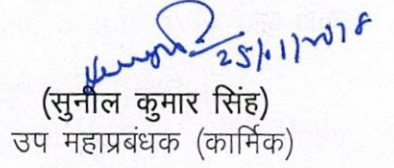 25/01/2018
(सुनील कुमार सिंह)
उप महाप्रबंधक (कार्मिक)